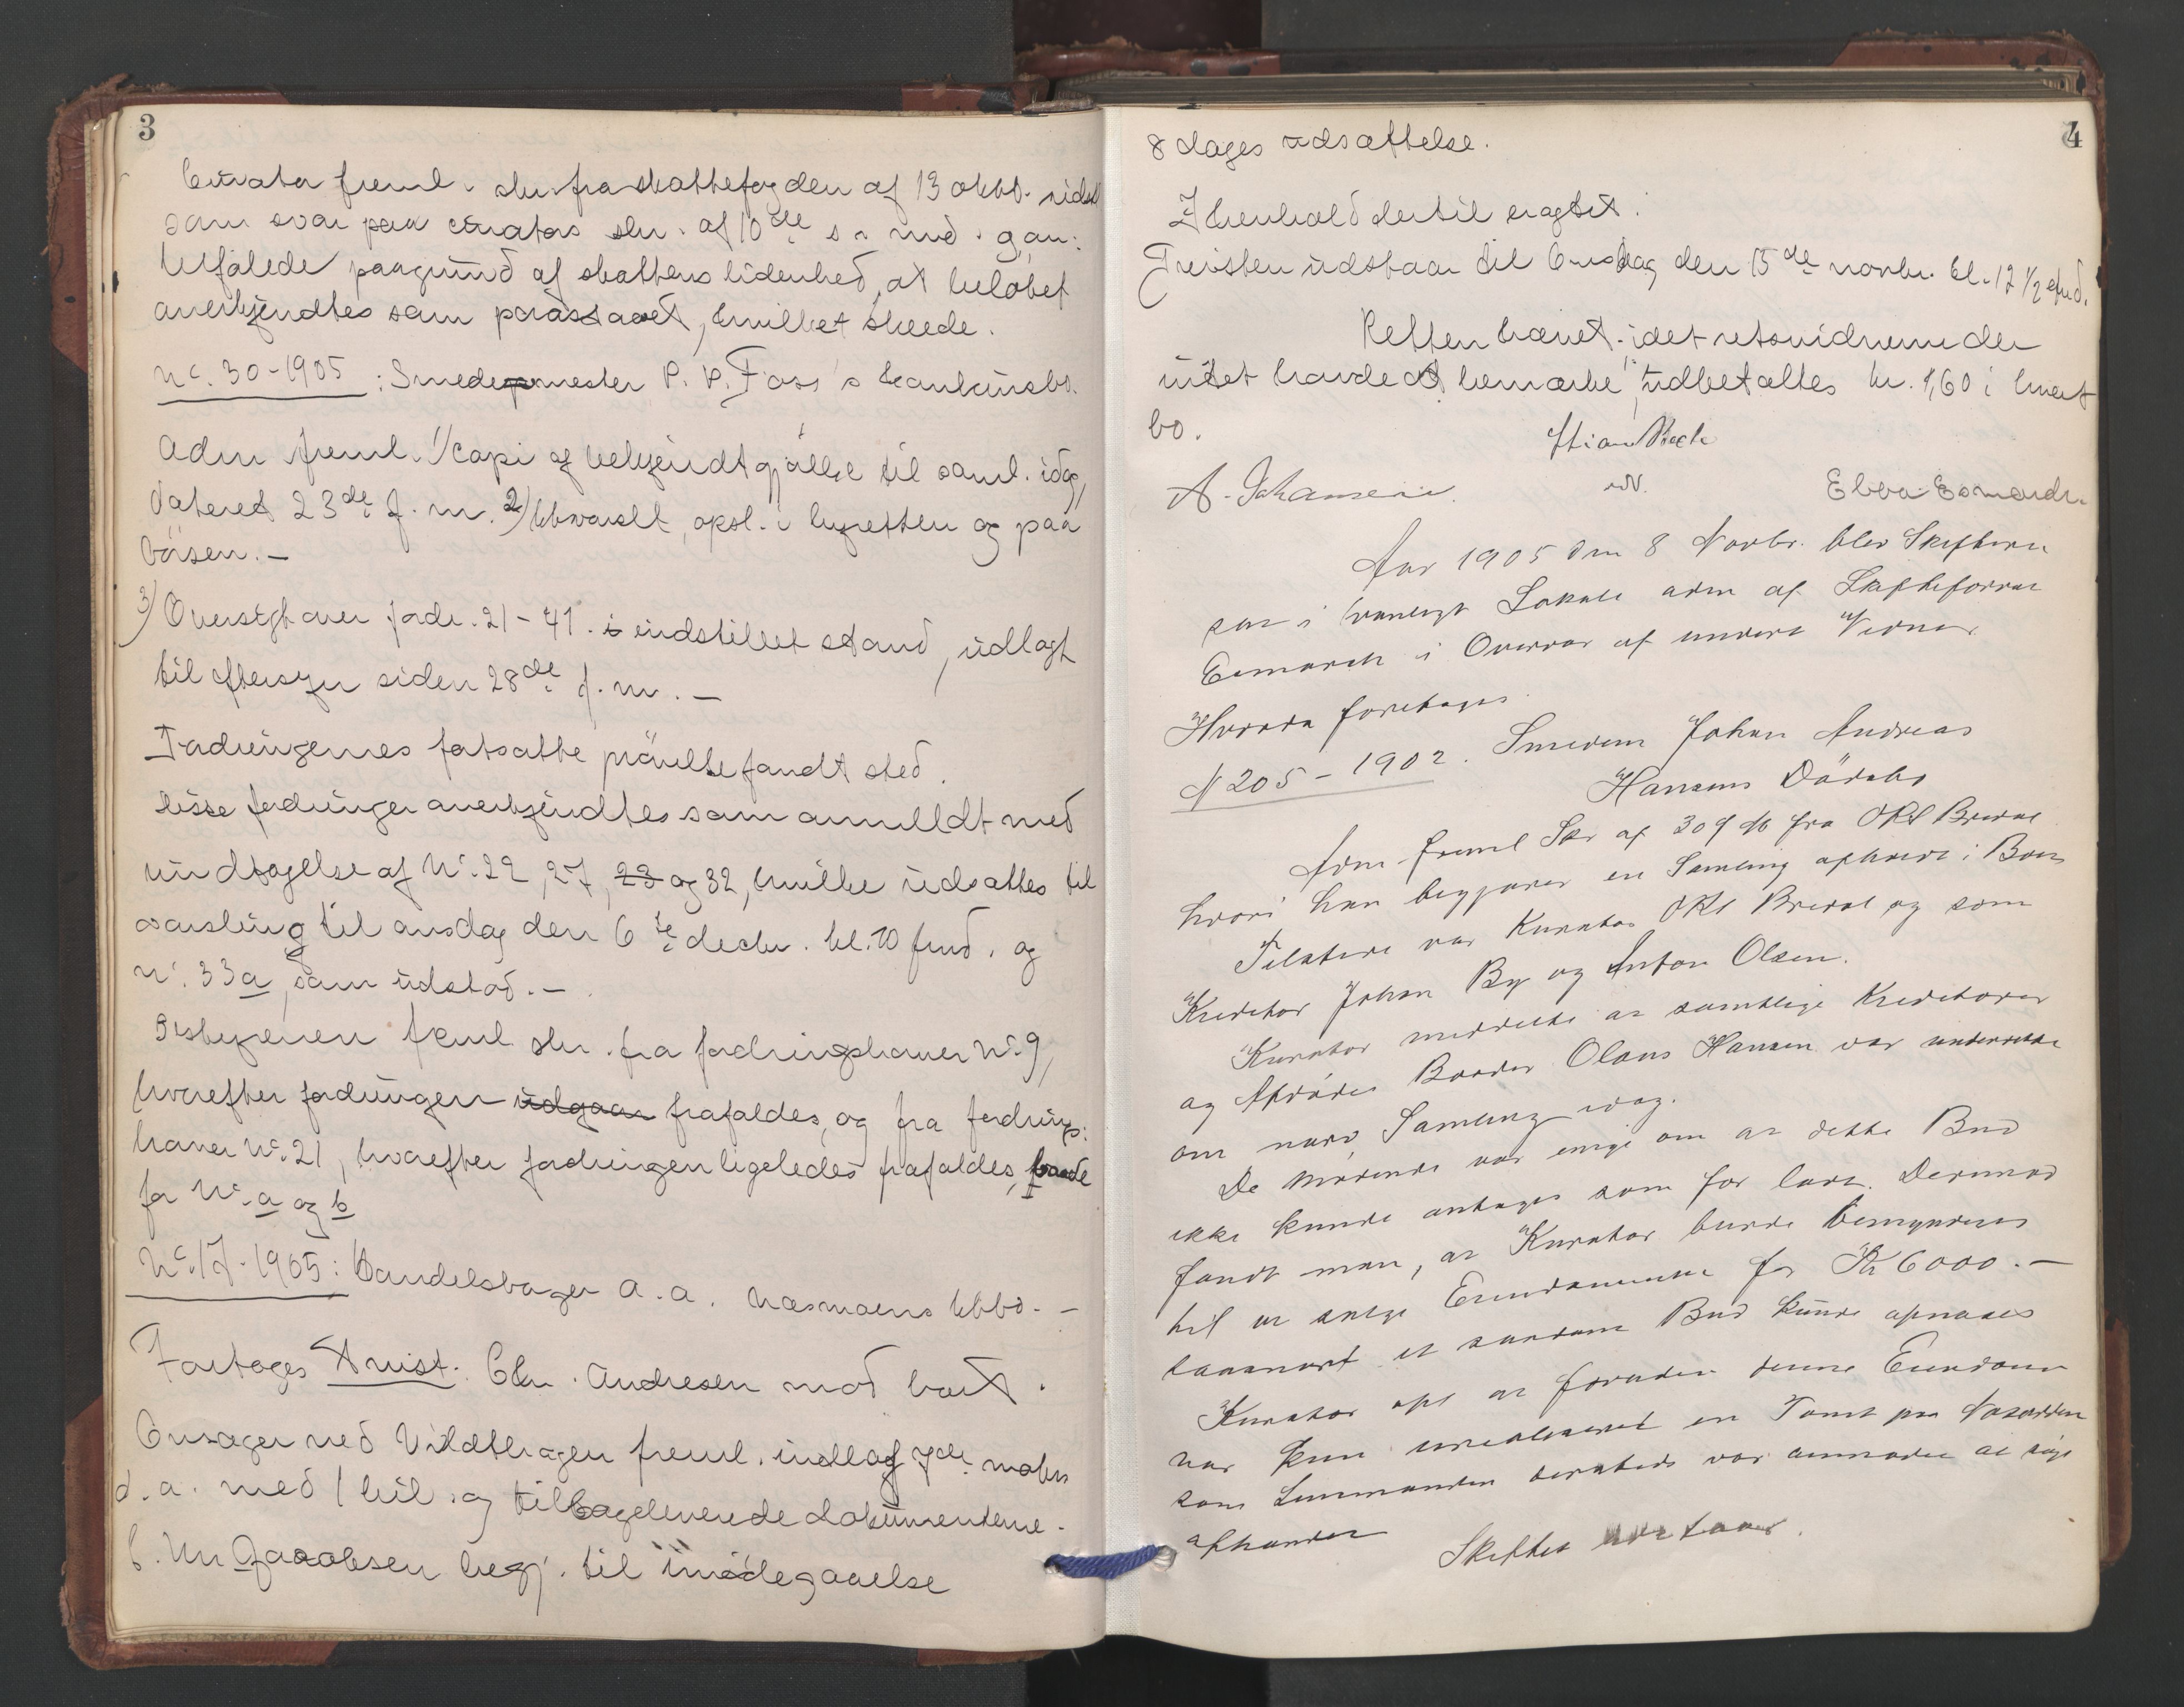 3
Curator freml. skr. fra skattefogden af 13 oktb. sidst
som svar paa curators skr. af 10de s. md. g an:
befalede paagrund af skattens lidenhed, at beløbet
anerkjendtes som paastaaet, hvilket skeede.
No. 30-1905 : Smedemester P. P. Foss's konkursbo.
Adm freml. 1/ copi af bekjendtgjørelse til saml. idag,
dateret 23de f. m. 2) opsl. i byretten og paa
børsen. —
3) Oversigt over fordr. 21-41. i indstillet stand, udlagt
til eftersyn siden 28de f. m. —
Fordringernes fortsatte prøvelse fandt sted.
Disse fordringer anerkjendtes som anmeldt med
undtagelse af No. 22, 27, 23 og 32, hvilke udsattes til
varsling til onsdag den 6te decbr. kl. 10 fmd. og
No. 33a, som udstod. —
Bestyreren freml. skr. fra fordringshaver No. 9,
hvorefter fordringen udgaar frafaldes, og fra fordrings:
haver No. 21, hvorefter fordringen ligeledes frafaldes, baade
for No. a og b
No. 17-1905: Handelsbager A. A. Næsmoens kkbo. —
Foretoges Tvist: Chr. Andresen mod boet.
Omsager ved Vildthagen freml. indlæg af 7de
d. a. med 1 bil. og tilbageleverede dokumenterne.
C. M. Jacobsen begj. til imødegaaelse
4
8 dages udsættelse.
I henhold dertil eragtet:
Tvisten udstaar til Onsdag den 15de novbr. kl. 12 1/2 emd.
Retten hævet. idet retsvidnerne der
intet havde at bemærke, udbetaltes kr. 1,60 i hvert
bo.
Stian Bech
A. Johansen. Ebba Esmarch
Aar 1905 den 8 Novbr. blev Skifteren
sat i vanligt Lokale adm af Skifteforvar
Esmarch i Overvær af undert Vidner.
Hvorda foretoges
N 205-1902. Smeden Johan Andreas
Hansens Dödsbo
Adm freml Skr af 30 f M fra ORS Brevne
hvori han begjærer en Samling afholdt i Boet
Tilstede var Kurator ORS og som
Kreditor Johan By og Anton Olsen.
Kurator meddelte at samtlige Kreditorer
og Afdødes Broder Olaus Hansen var underrettet
om nærv Samling idag.
De mødende var enige om at dette Bud
ikke kunde antages som for lavt. Derimod
fandt man, at Kurator burde bemyndiges
til at sælge Eiendommen for Kr 6000.—
saasnart et saadant Bud kunde opnaaes
Kurator opl at foruden denne Eiendom
var kun urealiseret en Tomt paa
som Lensmanden dersteds var anmodet at søge
afhændet
Skiftet udstaar.